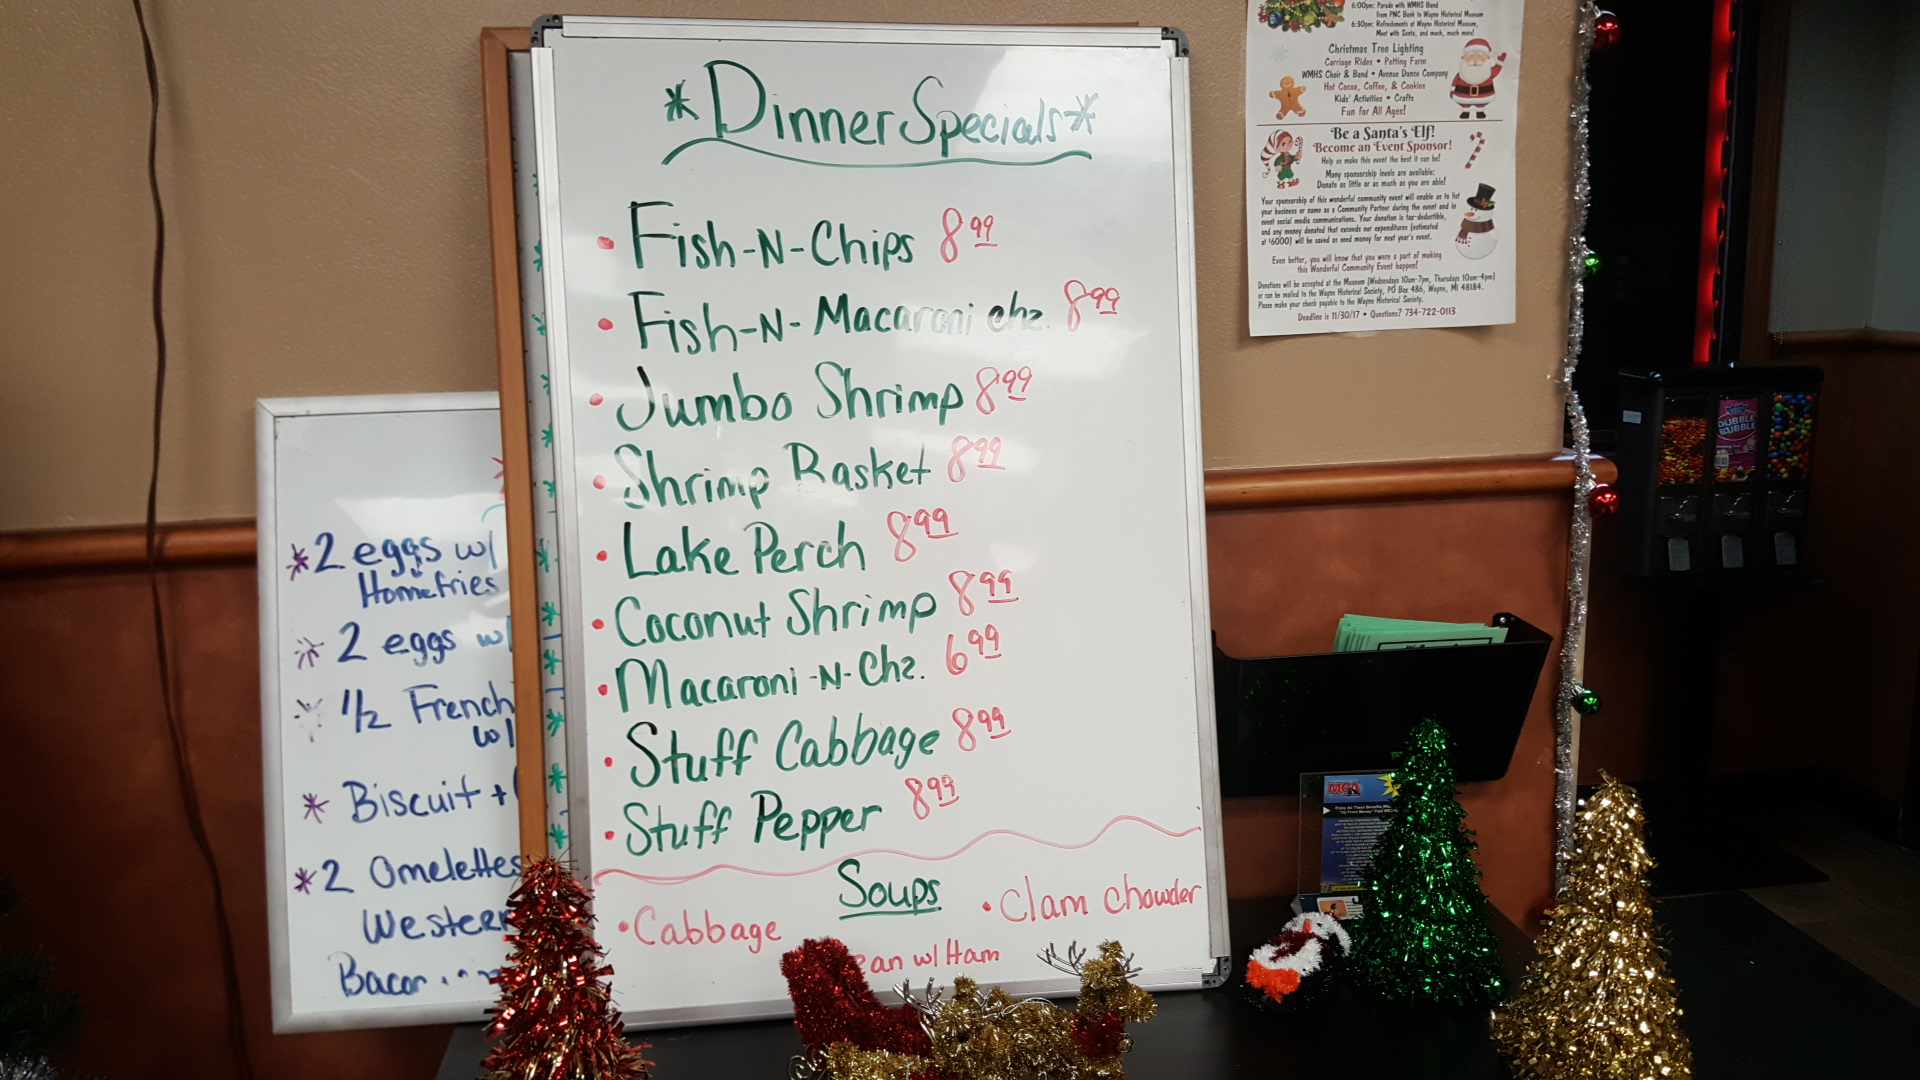 *Dinner Specials*
• Fish-N-Chips 8 99
• Fish-N-Macaroni chz. 8 99
• Jumbo Shrimp 8 99
• Shrimp Basket 8 99
• Lake Perch 8 99
• Coconut Shrimp 8 99
• Macaroni-N-Chz. 6 99
• Stuff Cabbage 8 99
• Stuff Pepper 8 99
Soups
• Cabbage
• Clam chowder
ean w/ Ham
* 2 eggs w/
Homefries
* 2 eggs w/
* 1/2 French
w/
* Biscuit +
* 2 Omelettes
Western
Bacon
6:00pm: Parade with WMHS Band
from PNC Bank to Wayne Historical Museum
6:30pm: Refreshments at Wayne Historical Museum,
Meet with Santa, and much, much more!
Christmas Tree Lighting
Carriage Rides • Petting Farm
WMHS Choir & Band • Avenue Dance Company
Hot Cocoa, Coffee, & Cookies
Kids' Activities • Crafts
Fun for All Ages!
Be a Santa's Elf!
Become an Event Sponsor!
Help us make this event the best it can be!
Many sponsorship levels are available:
Donate as little or as much as you are able!
Your sponsorship of this wonderful community event will enable us to list
your business or name as a Community Partner during the event and in
event social media communications. Your donation is tax-deductible,
and any money donated that exceeds our expenditures (estimated
at $6000) will be saved as seed money for next year's event.
Even better, you will know that you were a part of making
this Wonderful Community Event happen!
Donations will be accepted at the Museum (Wednesdays 10am-7pm, Thursdays 10am-4pm)
or can be mailed to the Wayne Historical Society, PO Box 486, Wayne, MI 48184.
Please make your check payable to the Wayne Historical Society.
Deadline is 11/30/17 • Questions? 734-722-0113
DUBBLE
BUBBLE
MCA
Enjoy All These Benefits